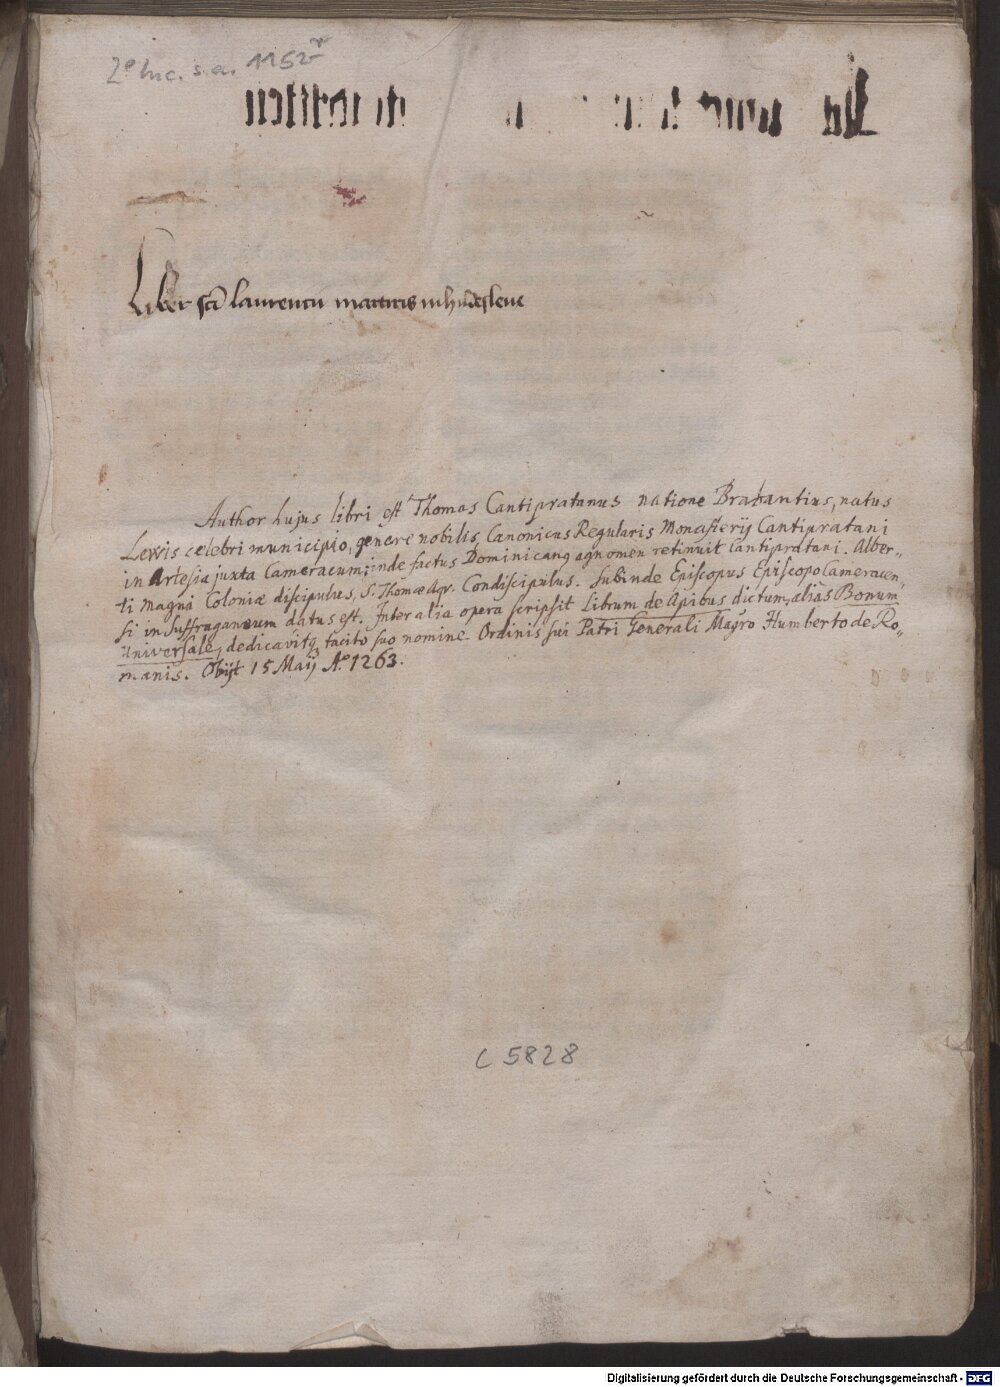 2° Inc. s. a. 1152
Liber sci laurencii martiris in hildesleve
Author hujus libri est Thomas Cantipratanus natione Brabantius, natus
Lewis celebri municipio, genere nobilis, Canonicus Regularis Monasterij Cantipratani
in Artesia juxta Cameracum; inde factus Dominicanq agnomen retinuit Cantipratani. Alber-
ti Magni Coloniæ discipulus, S. Thomæ Aqr. Condiscipulus. Subinde Episcopus Episcopo Cameracen-
si in Suffraganeum datus est. Inter alia opera scripsit Librum de Apibus dictum, aliàs Bonum
Universale, dedicavitq; tacito suo nomine Ordinis sui Patri Generali Magro Humberto de Ro-
manis. Obijt 15 Maij A.° 1263.
C 5828
Digitalisierung gefördert durch die Deutsche Forschungsgemeinschaft - DFG